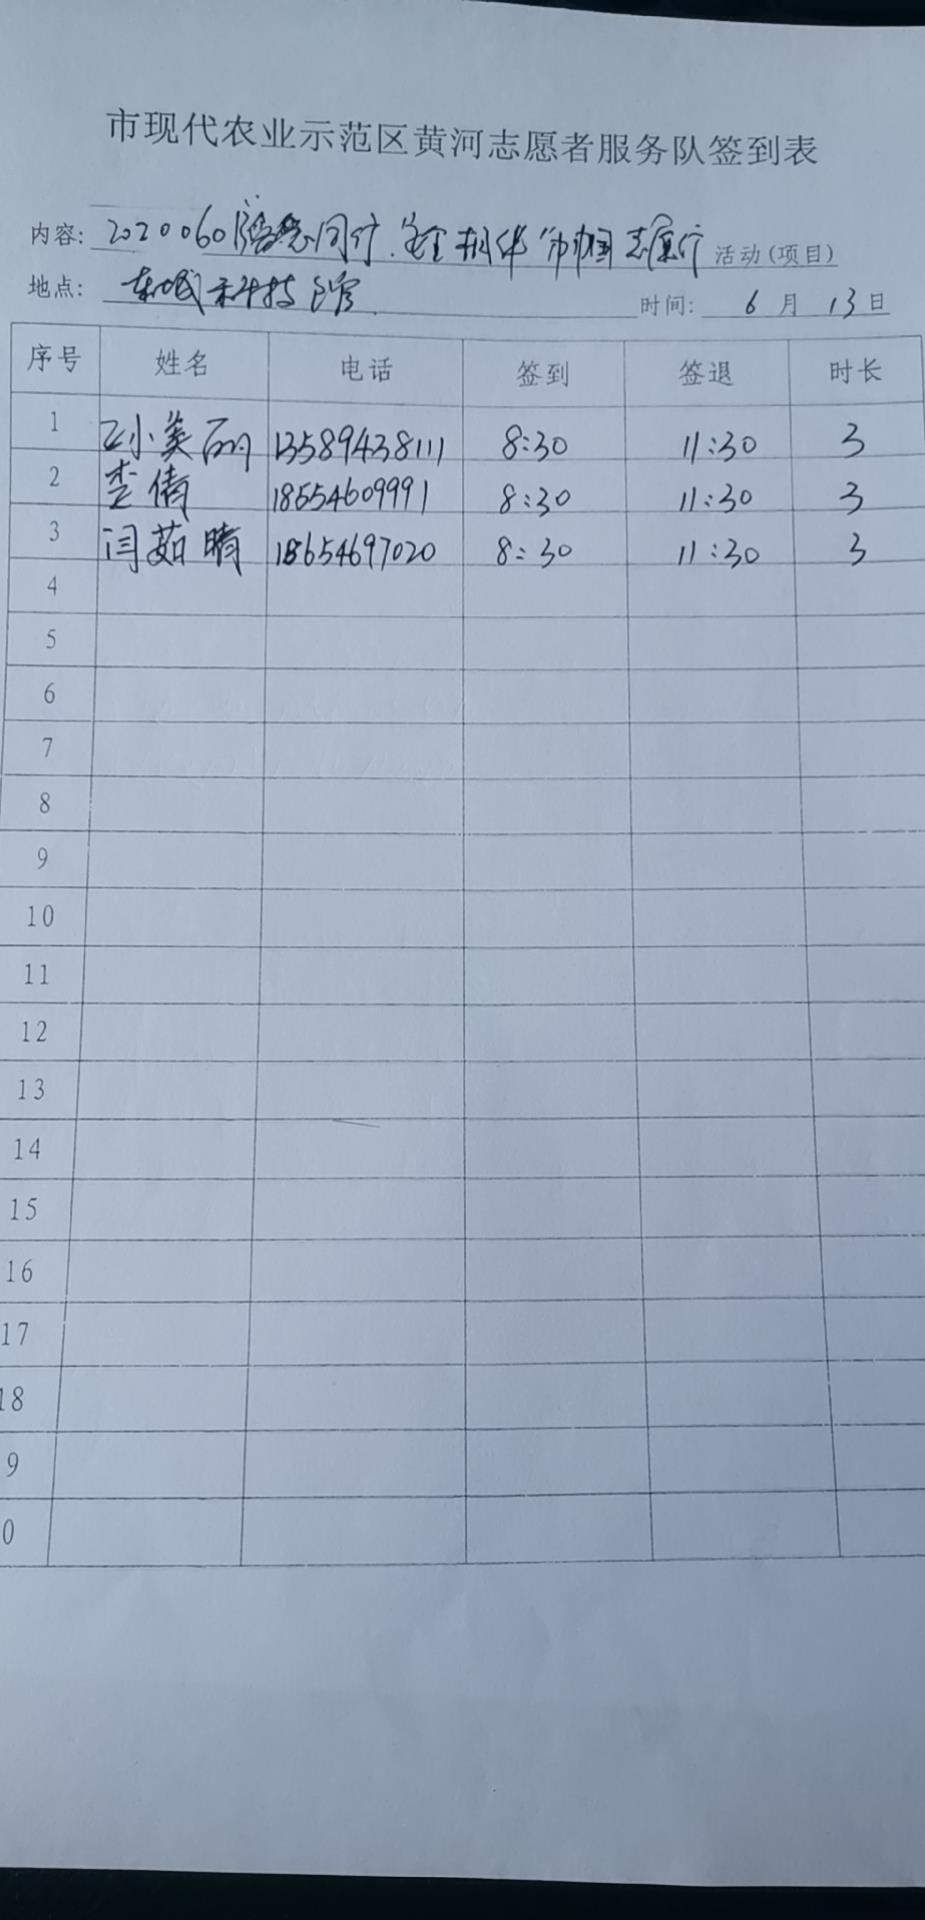 市现代农业示范区黄河志愿者服务队签到表
内容: 2020060 同行.安全相伴"巾帼志愿行 活动(项目)
地点: 东城科技馆 时间: 6 月 13 日
序号 姓名 电话 签到 签退 时长
1 孙美丽 13589438111 8:30 11:30 3
2 李倩 18554609991 8:30 11:30 3
3 闫茹晴 18654697020 8:30 11:30 3
4
5
6
7
8
9
10
11
12
13
14
15
16
17
18
9
0